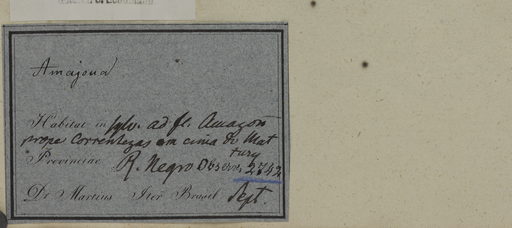 Amajoua
Habitat in sylv. ad fl. Amazon
prope Correntezas em cima de Mat
tury
Provinciae R. Negro Observ. 2742
Dr Martius Iter Brasil. Sept.